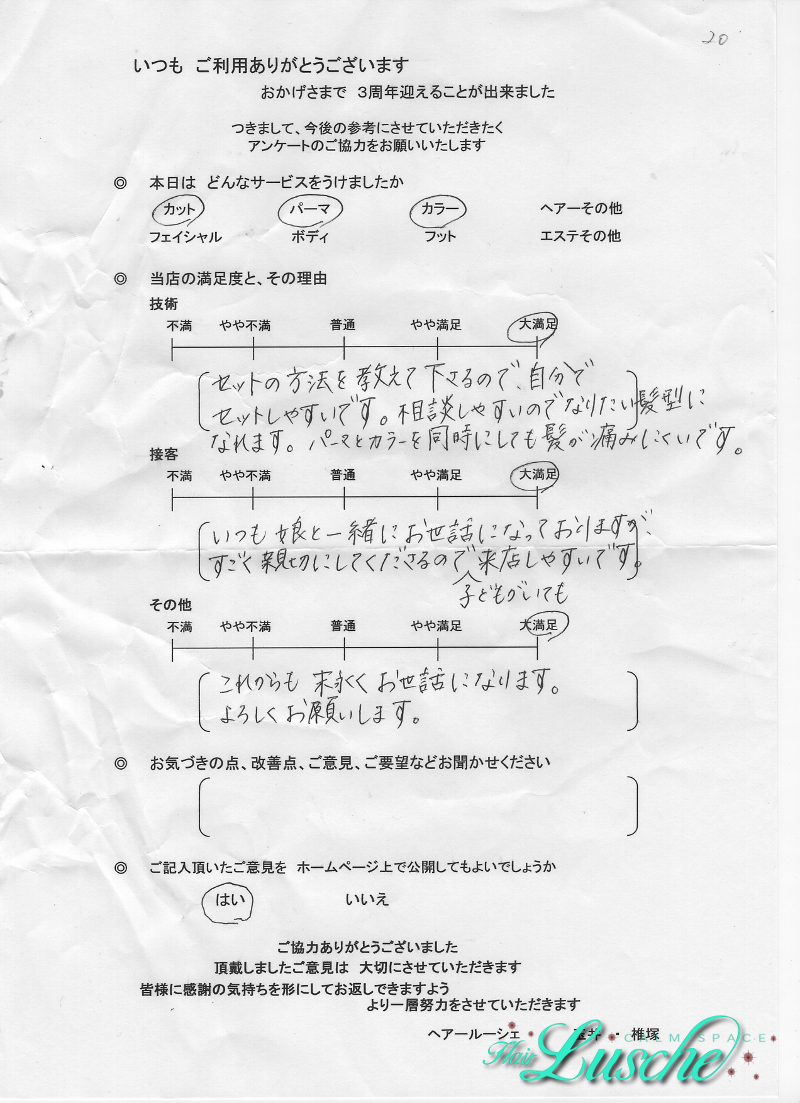 20
いつも ご利用ありがとうございます
おかげさまで 3周年迎えることが出来ました
つきまして、今後の参考にさせていただきたく
アンケートのご協力をお願いいたします
◎ 本日は どんなサービスをうけましたか
カット パーマ カラー ヘアーその他
フェイシャル ボディ フット エステその他
◎ 当店の満足度と、その理由
技術
不満 やや不満 普通 やや満足 大満足
セットの方法を教えて下さるので、自分で
セットしやすいです。相談しやすいのでなりたい髪型に
なれます。パーマとカラーを同時にしても髪が痛みにくいです。
接客
不満 やや不満 普通 やや満足 大満足
いつも娘と一緒にお世話になっておりますが、
すごく親切にしてくださるので来店しやすいです。
子どもがいても
その他
不満 やや不満 普通 やや満足 大満足
これからも末永くお世話になります。
よろしくお願いします。
◎ お気づきの点、改善点、ご意見、ご要望などお聞かせください
◎ ご記入頂いたご意見を ホームページ上で公開してもよいでしょうか
はい いいえ
ご協力ありがとうございました
頂戴しましたご意見は 大切にさせていただきます
皆様に感謝の気持ちを形にしてお返しできますよう
より一層努力をさせていただきます
ヘアールーシェ ・ 椎塚
CALM SPACE
Hair Lusche